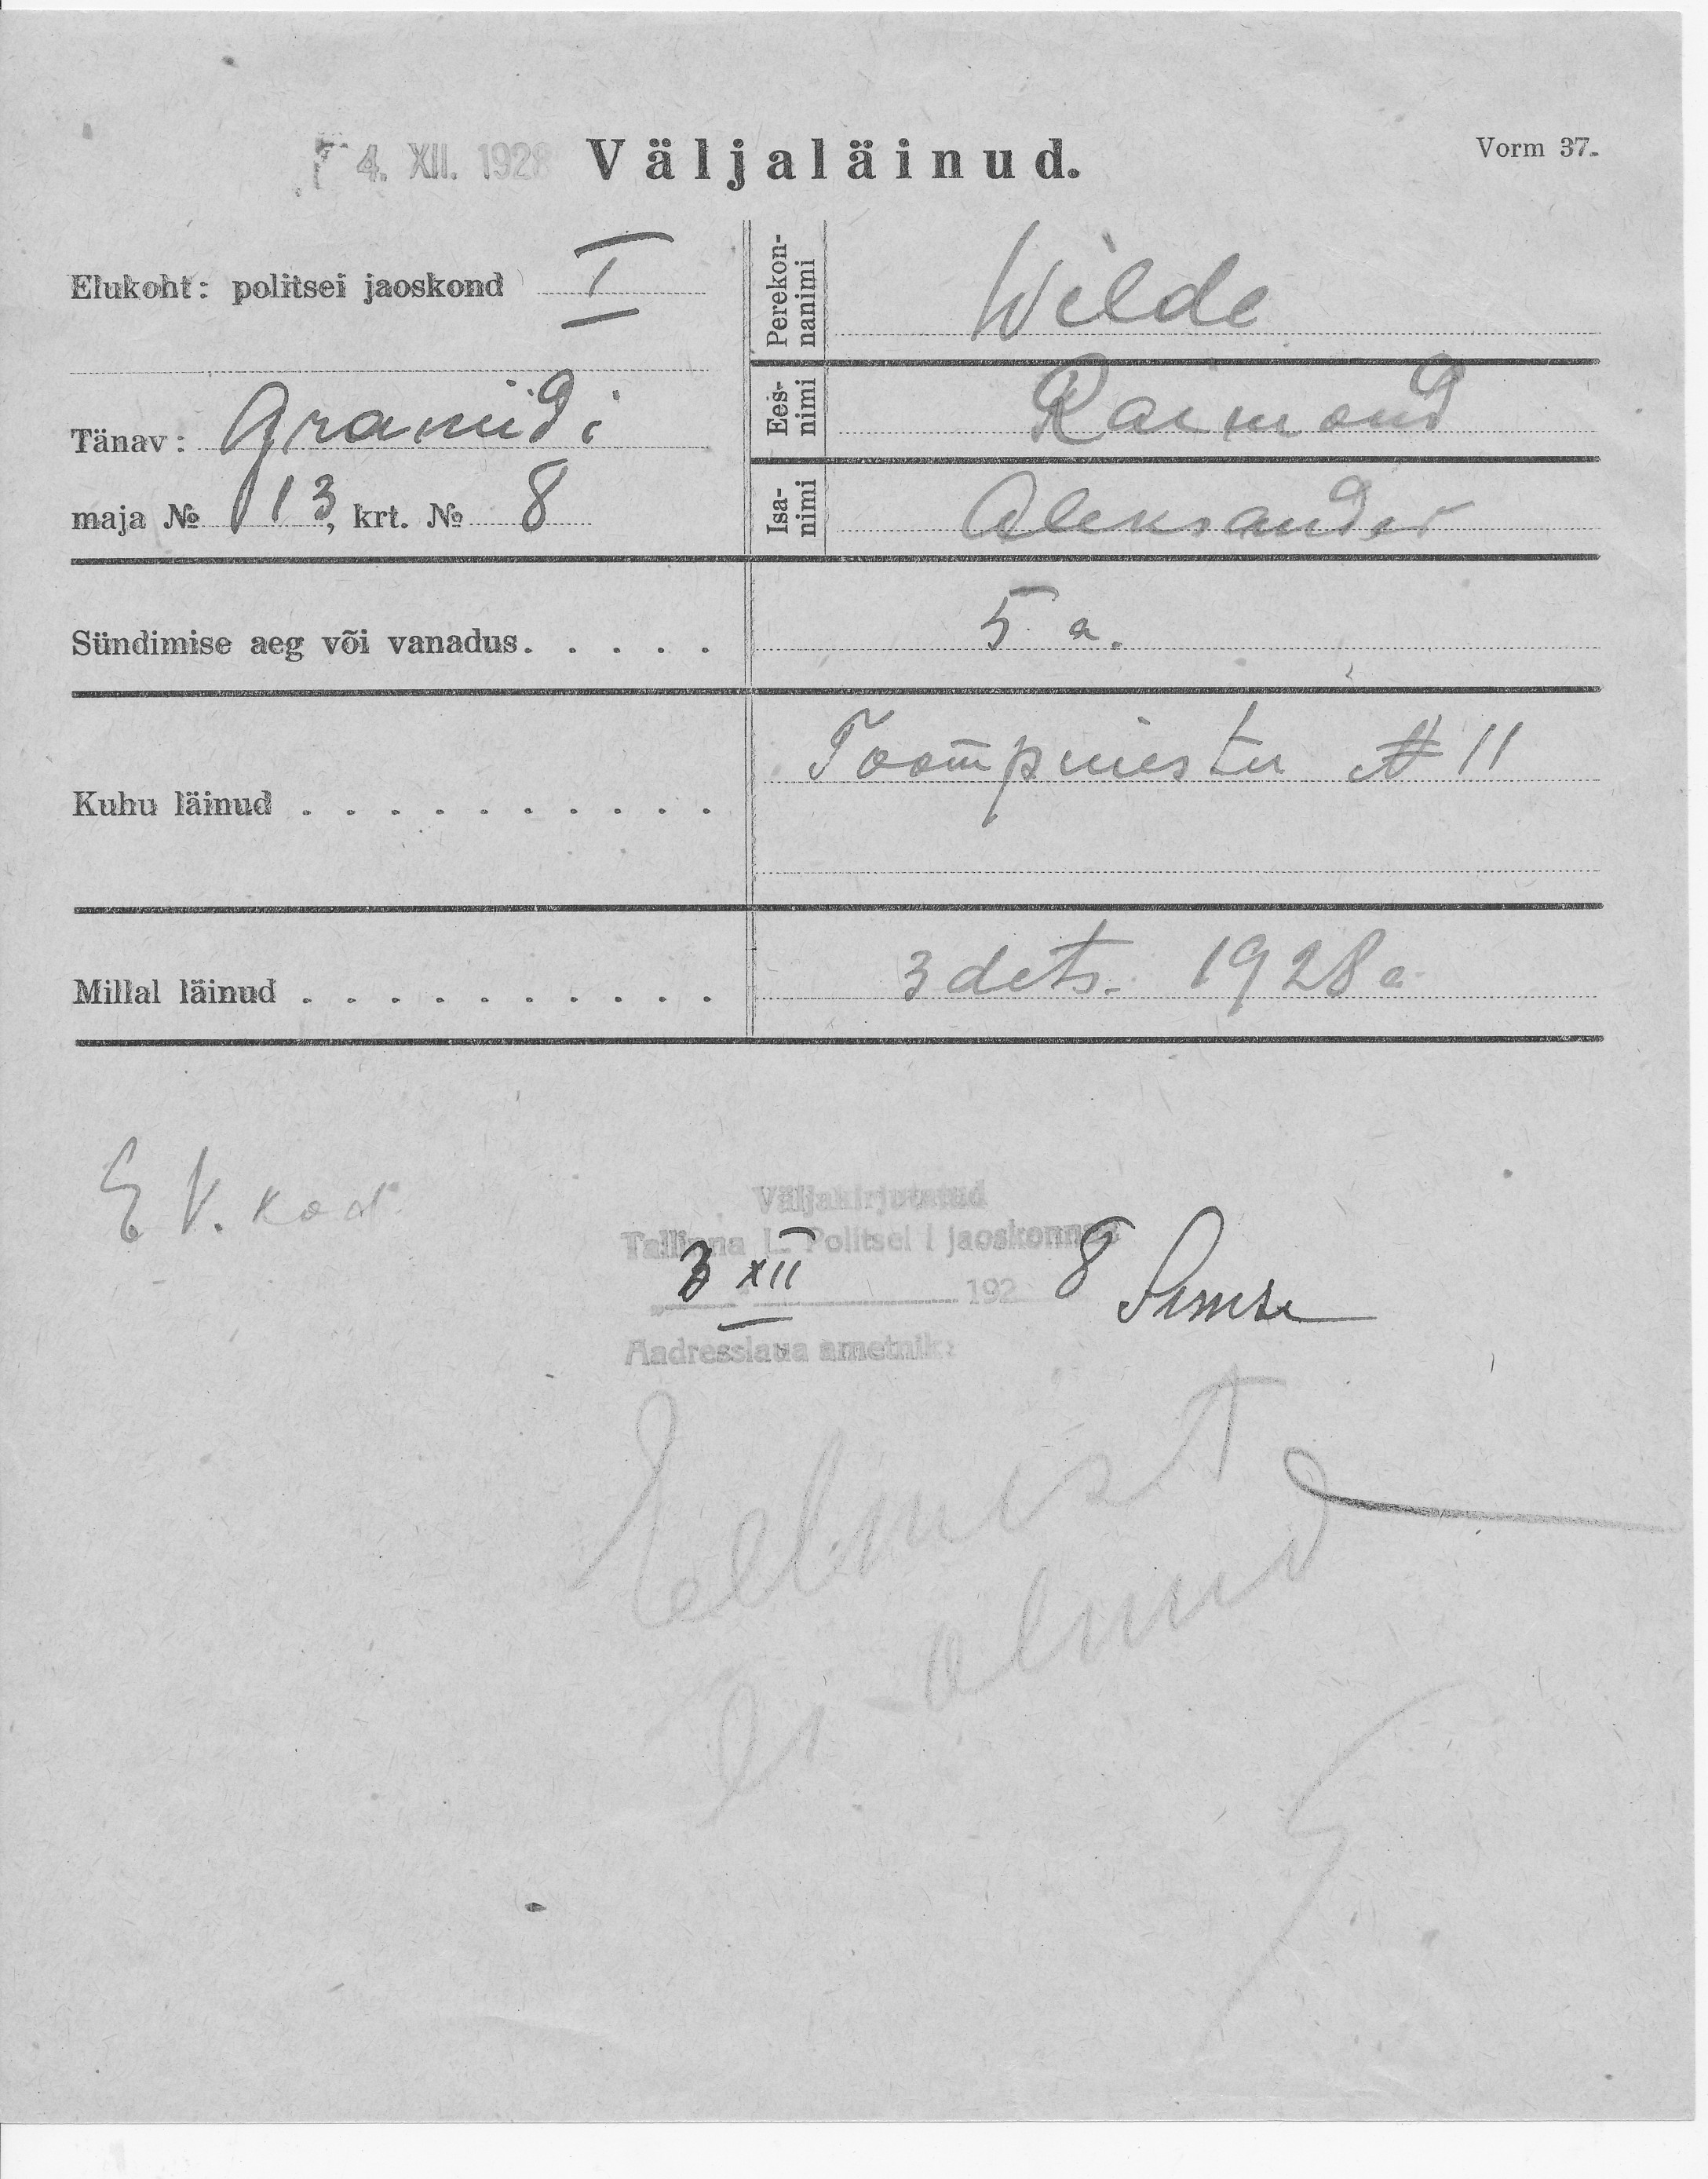 4. XII. 1928 Väljaläinud. Vorm 37.
Elukoht: politsei jaoskond I
Tänav: Graniidi
maja № 13, krt. № 8
Perekon-
nanimi Wilde
Ees-
nimi Raimond
Isa-
nimi Aleksander
Sündimise aeg või vanadus. . . . . 5 a.
Kuhu läinud . . . . . . . . . . Toompuiestee № 11
Millal läinud . . . . . . . . . . 3 dets. 1928 a
E V. kod.
Väljakirjutatud
Tallinna L. Politsei I jaoskonnas
3 XII 192 8
Aadresslaua ametnik:
Eelmist
ei olnud